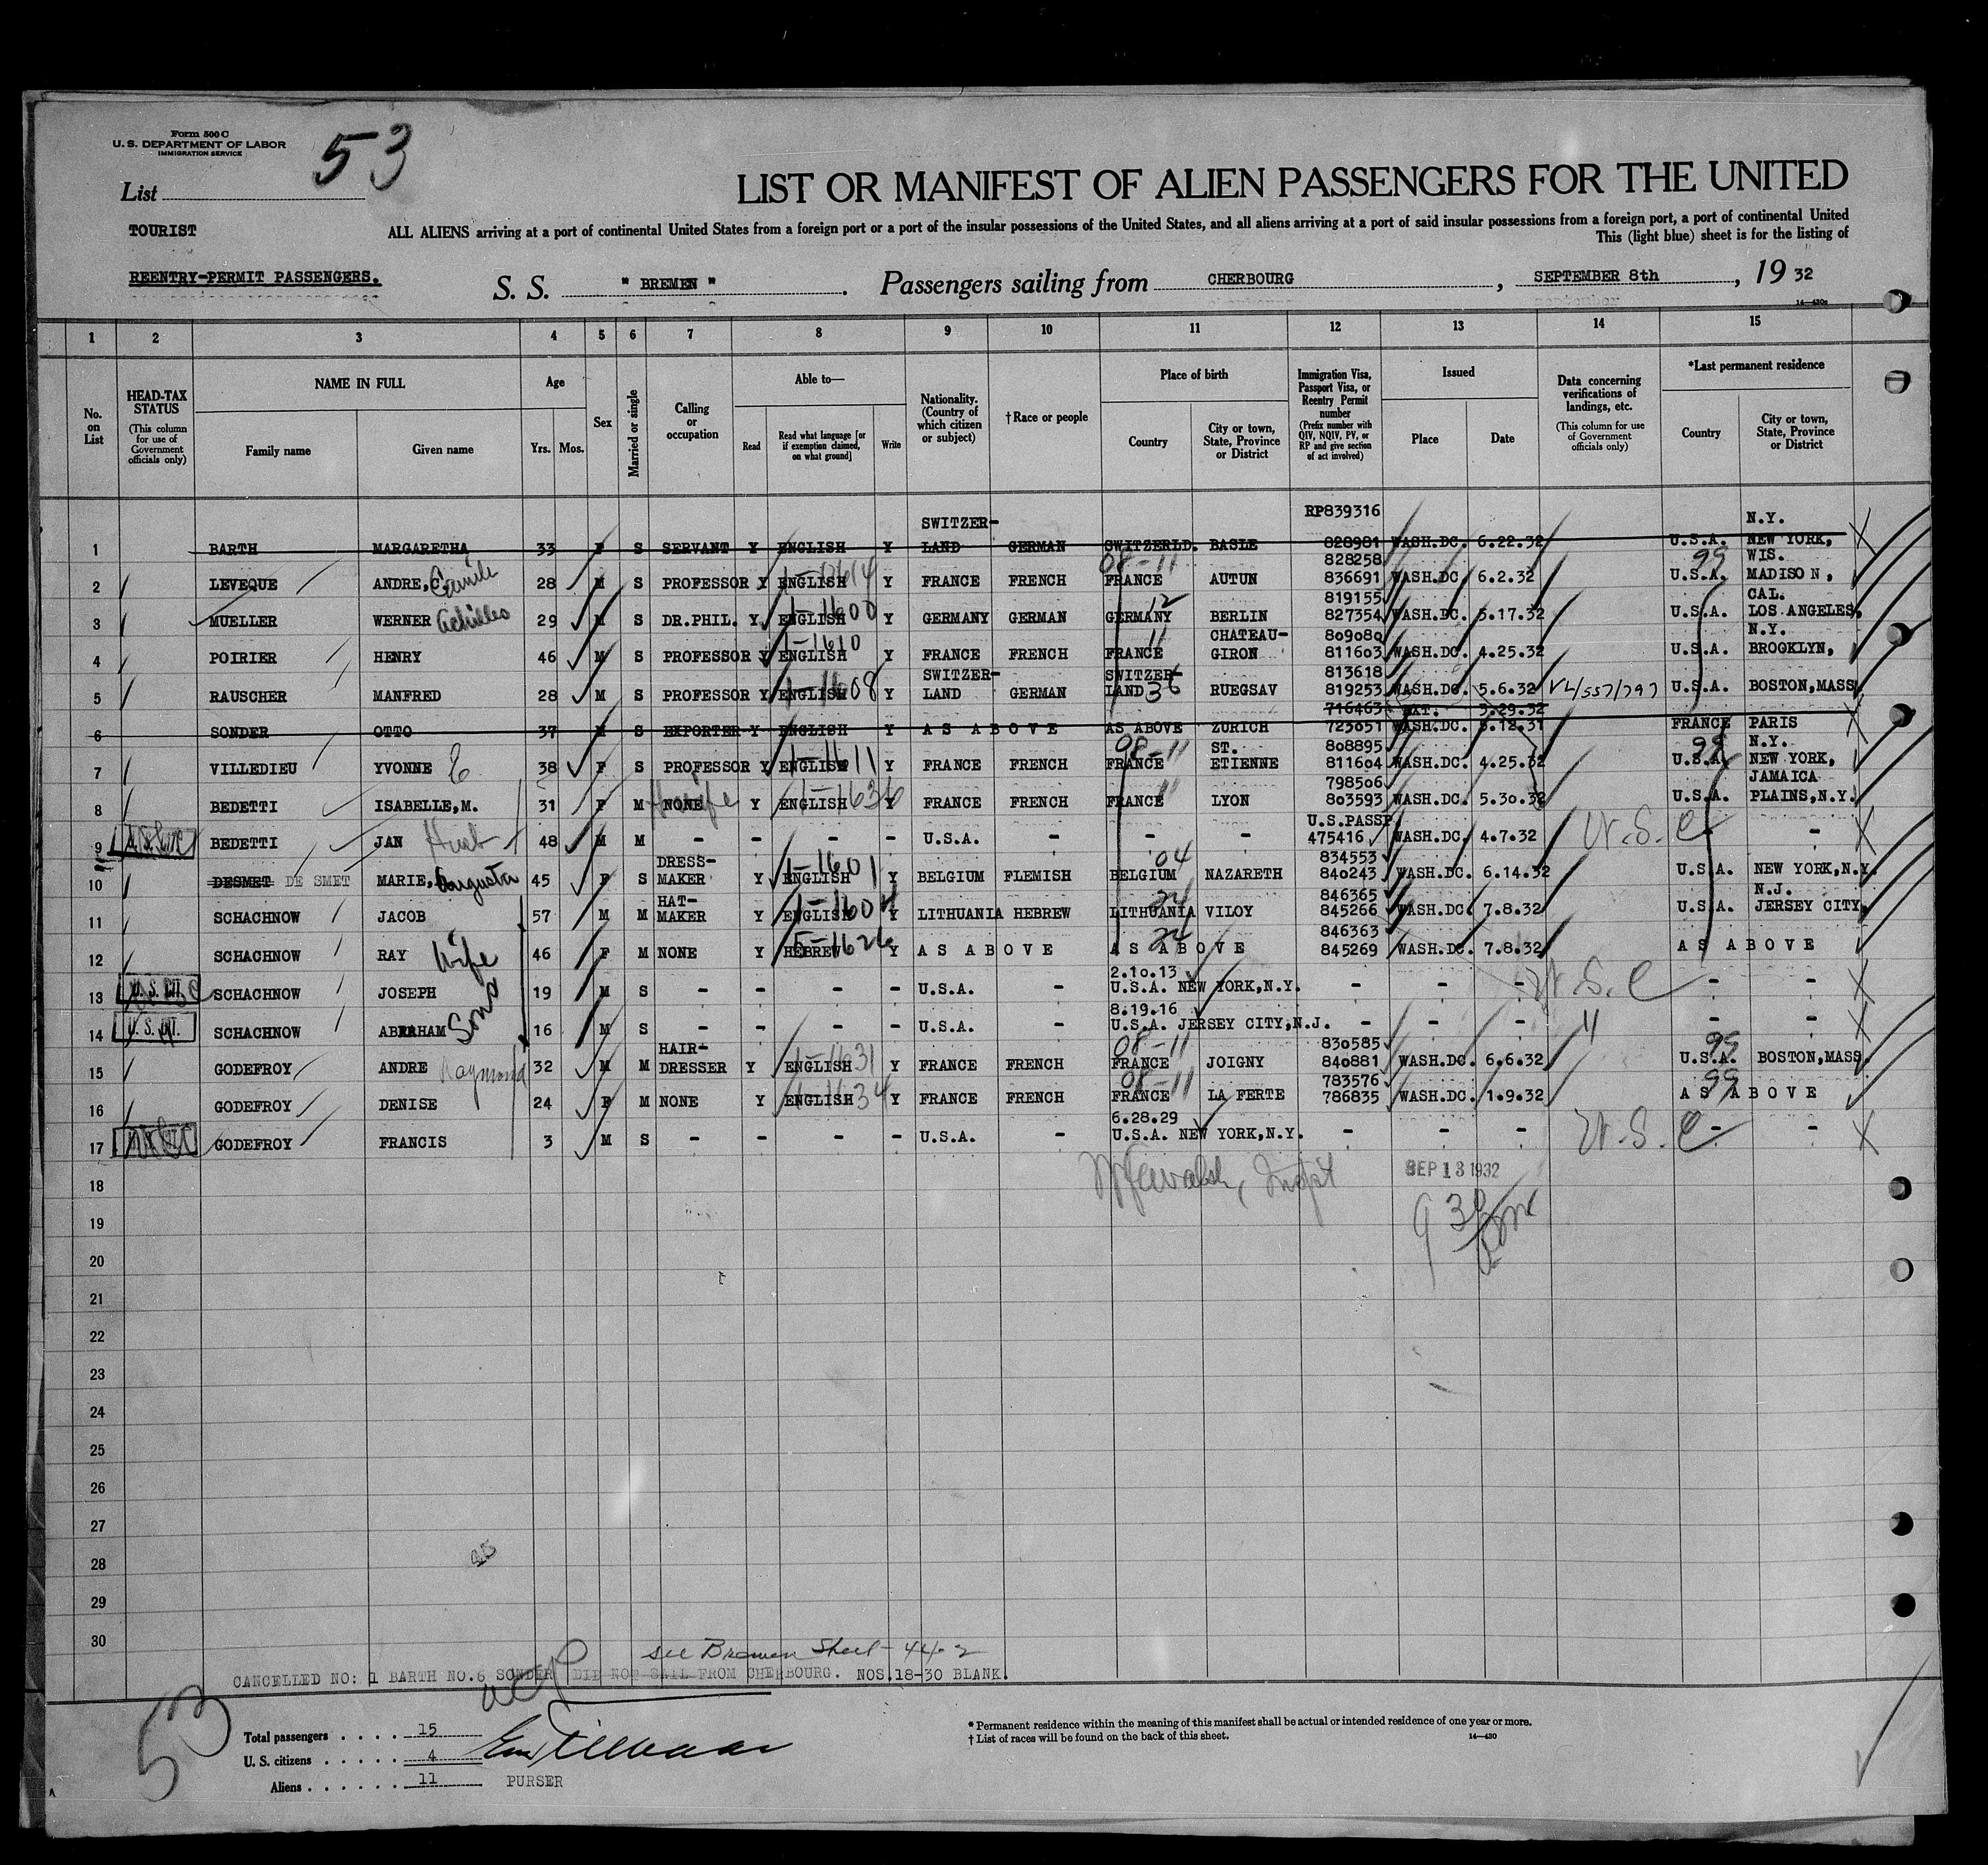 Form 500 C
U. S. DEPARTMENT OF LABOR
IMMIGRATION SERVICE
53
List
LIST OR MANIFEST OF ALIEN PASSENGERS FOR THE UNITED
TOURIST
ALL ALIENS arriving at a port of continental United States from a foreign port or a port of the insular possessions of the United States, and all aliens arriving at a port of said insular possessions from a foreign port, a port of continental United
This (light blue) sheet is for the listing of
REENTRY-PERMIT PASSENGERS.
S. S. " BREMEN ". Passengers sailing from CHERBOURG, SEPTEMBER 8th, 19 32
1 2 3 4 5 6 7 8 9 10 11 12 13 14 15
No. on List
HEAD-TAX STATUS (This column for use of Government officials only)
NAME IN FULL Family name Given name
Age Yrs. Mos.
Sex
Married or single
Calling or occupation
Able to— Read Read what language [or if exemption claimed, on what ground] Write
Nationality. (Country of which citizen or subject)
† Race or people
Place of birth Country City or town, State, Province or District
Immigration Visa, Passport Visa, or Reentry Permit number (Prefix number with QIV, NQIV, PV, or RP and give section of act involved)
Issued Place Date
Data concerning verifications of landings, etc. (This column for use of Government officials only)
*Last permanent residence Country City or town, State, Province or District
SWITZER- RP839316 N.Y.
1 BARTH MARGARETHA 33 F S SERVANT Y ENGLISH Y LAND GERMAN SWITZERLD. BASLE 828981 WASH.DC. 6.22.32 U.S.A. NEW YORK,
08-11 828258 99 WIS.
2 LEVEQUE ANDRE,C. Camile 28 M S PROFESSOR Y ENGLISH 1-1614 Y FRANCE FRENCH FRANCE AUTUN 836691 WASH.DC. 6.2.32 U.S.A. MADISON,
12 819155 CAL.
3 MUELLER WERNER Achilles 29 M S DR.PHIL. Y ENGLISH 1-1600 Y GERMANY GERMAN GERMANY BERLIN 827354 WASH.DC. 5.17.32 U.S.A. LOS ANGELES,
1-1610 11 CHATEAU- 809080 N.Y.
4 POIRIER HENRY 46 M S PROFESSOR Y ENGLISH Y FRANCE FRENCH FRANCE GIRON 811603 WASH.DC. 4.25.32 U.S.A. BROOKLYN,
SWITZER- SWITZER- 813618
5 RAUSCHER MANFRED 28 M S PROFESSOR Y ENGLISH 1-1608 Y LAND GERMAN LAND 36 RUEGSAV 819253 WASH.DC. 5.6.32 VL/557/797 U.S.A. BOSTON,MASS
716463 EXT. 3.29.32
6 SONDER OTTO 37 M S EXPORTER Y ENGLISH Y AS ABOVE AS ABOVE ZURICH 723651 WASH.DC. 5.12.31 FRANCE PARIS
08-11 ST. 808895 99 N.Y.
7 VILLEDIEU YVONNE E 38 F S PROFESSOR Y ENGLISH 1-1611 Y FRANCE FRENCH FRANCE ETIENNE 811604 WASH.DC. 4.25.32 U.S.A. NEW YORK,
798506 JAMAICA
8 BEDETTI ISABELLE,M. 31 F M NONE Hwife Y ENGLISH 1-1636 Y FRANCE FRENCH FRANCE 11 LYON 803593 WASH.DC. 5.30.32 U.S.A. PLAINS,N.Y.
U.S.PASSP.
9 BEDETTI JAN Husb 48 M M - - - - U.S.A. - - - 475416 WASH.DC. 4.7.32 U.S.C - -
DRESS- 1-1601 04 834553
10 DESMET DE SMET MARIE, Augusta 45 F S MAKER Y ENGLISH Y BELGIUM FLEMISH BELGIUM NAZARETH 840243 WASH.DC. 6.14.32 U.S.A. NEW YORK,N.Y.
HAT- 24 846365 N.J.
11 SCHACHNOW JACOB 57 M M MAKER Y ENGLISH 1-1604 Y LITHUANIA HEBREW LITHUANIA VILOY 845266 WASH.DC. 7.8.32 U.S.A. JERSEY CITY,
24 846363
12 SCHACHNOW RAY Wife 46 F M NONE Y HEBREW 5-1626 Y AS ABOVE AS ABOVE 845269 WASH.DC. 7.8.32 AS ABOVE
2.10.13
13 U.S. CIT. SCHACHNOW JOSEPH 19 M S - - - - U.S.A. - U.S.A. NEW YORK,N.Y. - - - U.S.C - -
Sons
8.19.16
14 U.S. CIT. SCHACHNOW ABRAHAM 16 M S - - - - U.S.A. - U.S.A. JERSEY CITY,N.J. - - - 11 - -
HAIR- 08-11 830585 99
15 GODEFROY ANDRE Raymond 32 M M DRESSER Y ENGLISH 1-1631 Y FRANCE FRENCH FRANCE JOIGNY 840881 WASH.DC. 6.6.32 U.S.A. BOSTON,MASS.
08-11 783576 99
16 GODEFROY DENISE 24 F M NONE Y ENGLISH 1-1634 Y FRANCE FRENCH FRANCE LA FERTE 786835 WASH.DC. 1.9.32 AS ABOVE
6.28.29
17 GODEFROY FRANCIS 3 M S - - - - U.S.A. - U.S.A. NEW YORK,N.Y. - - - U.S.C - -
18 SEP 13 1932
19
20
21
22
23
24
25
26
27
28
29
30
see Bremen Sheet - 44-2
CANCELLED NO: 1 BARTH NO.6 SONDER DID NOT SAIL FROM CHERBOURG. NOS.18-30 BLANK.
53
Total passengers . . . . 15
U. S. citizens . . . . . 4
Aliens . . . . . . 11
PURSER
* Permanent residence within the meaning of this manifest shall be actual or intended residence of one year or more.
† List of races will be found on the back of this sheet.
14—430